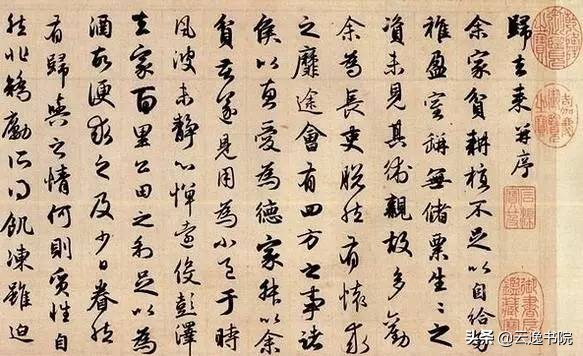 歸去来并序
余家貧耕植不足以自給幼
稚盈室缾無儲粟生生之
資未見其術親故多勸
余為長吏脫然有懷求
之靡途會有四方之事諸
侯以惠愛為德家叔以余
貧苦遂見用為小邑于時
風波未靜心憚遠役彭澤
去家百里公田之利足以為
酒故便求之及少日眷然
有歸與之情何則質性自
然非矯勵所得飢凍雖迫
嘉慶御覽之寶
石渠寶笈
御書房鑑藏寶
头条 @云逸书院